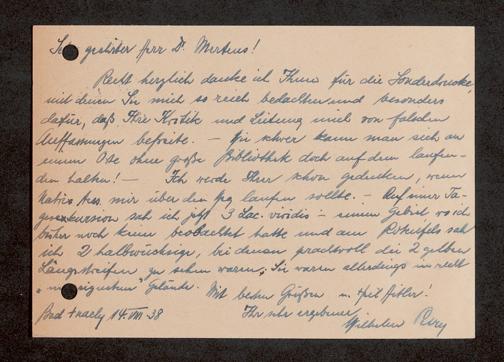 Sehr geehrter Herr Dr. Mertens!
Recht herzlich danke ich Ihnen für die Sonderdrucke,
mit denen Sie mich so reich bedachten und besonders
dafür, daß Ihre Kritik und Leitung mich von falschen
Auffassungen befreite. – Wie schwer kann man sich an
einem Orte ohne große Bibliothek doch auf dem laufen-
den halten! – Ich werde Ihrer schon gedenken, wenn
mir über den Weg laufen sollte. – Auf einer Ta-
gesexkursion sah ich jetzt 3 Lac. viridis – einem Gebiet wo ich
früher noch keine beobachtet hatte und am sah
ich 2 halbwüchsige, bei denen prachtvoll die 2 gelben
Längsstreifen zu sehen waren. Sie waren allerdings in recht
Gelände.
Mit besten Grüßen u. Heil Hitler!
Bad 14. VIII. 38 Ihr sehr ergebener
Wilhelm